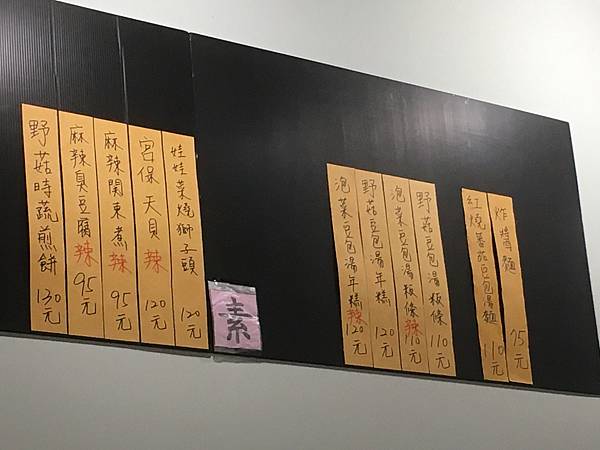 炸醬麵 75元
紅燒蕃茄豆包湯麵 110元
野菇豆包湯板條 110元
泡菜豆包湯板條辣 110元
野菇豆包湯年糕 120元
泡菜豆包湯年糕辣 120元
素
娃娃菜燒獅子頭 120元
宮保天貝辣 120元
麻辣関東煮辣 95元
麻辣臭豆腐辣 95元
野菇時蔬煎餅 130元